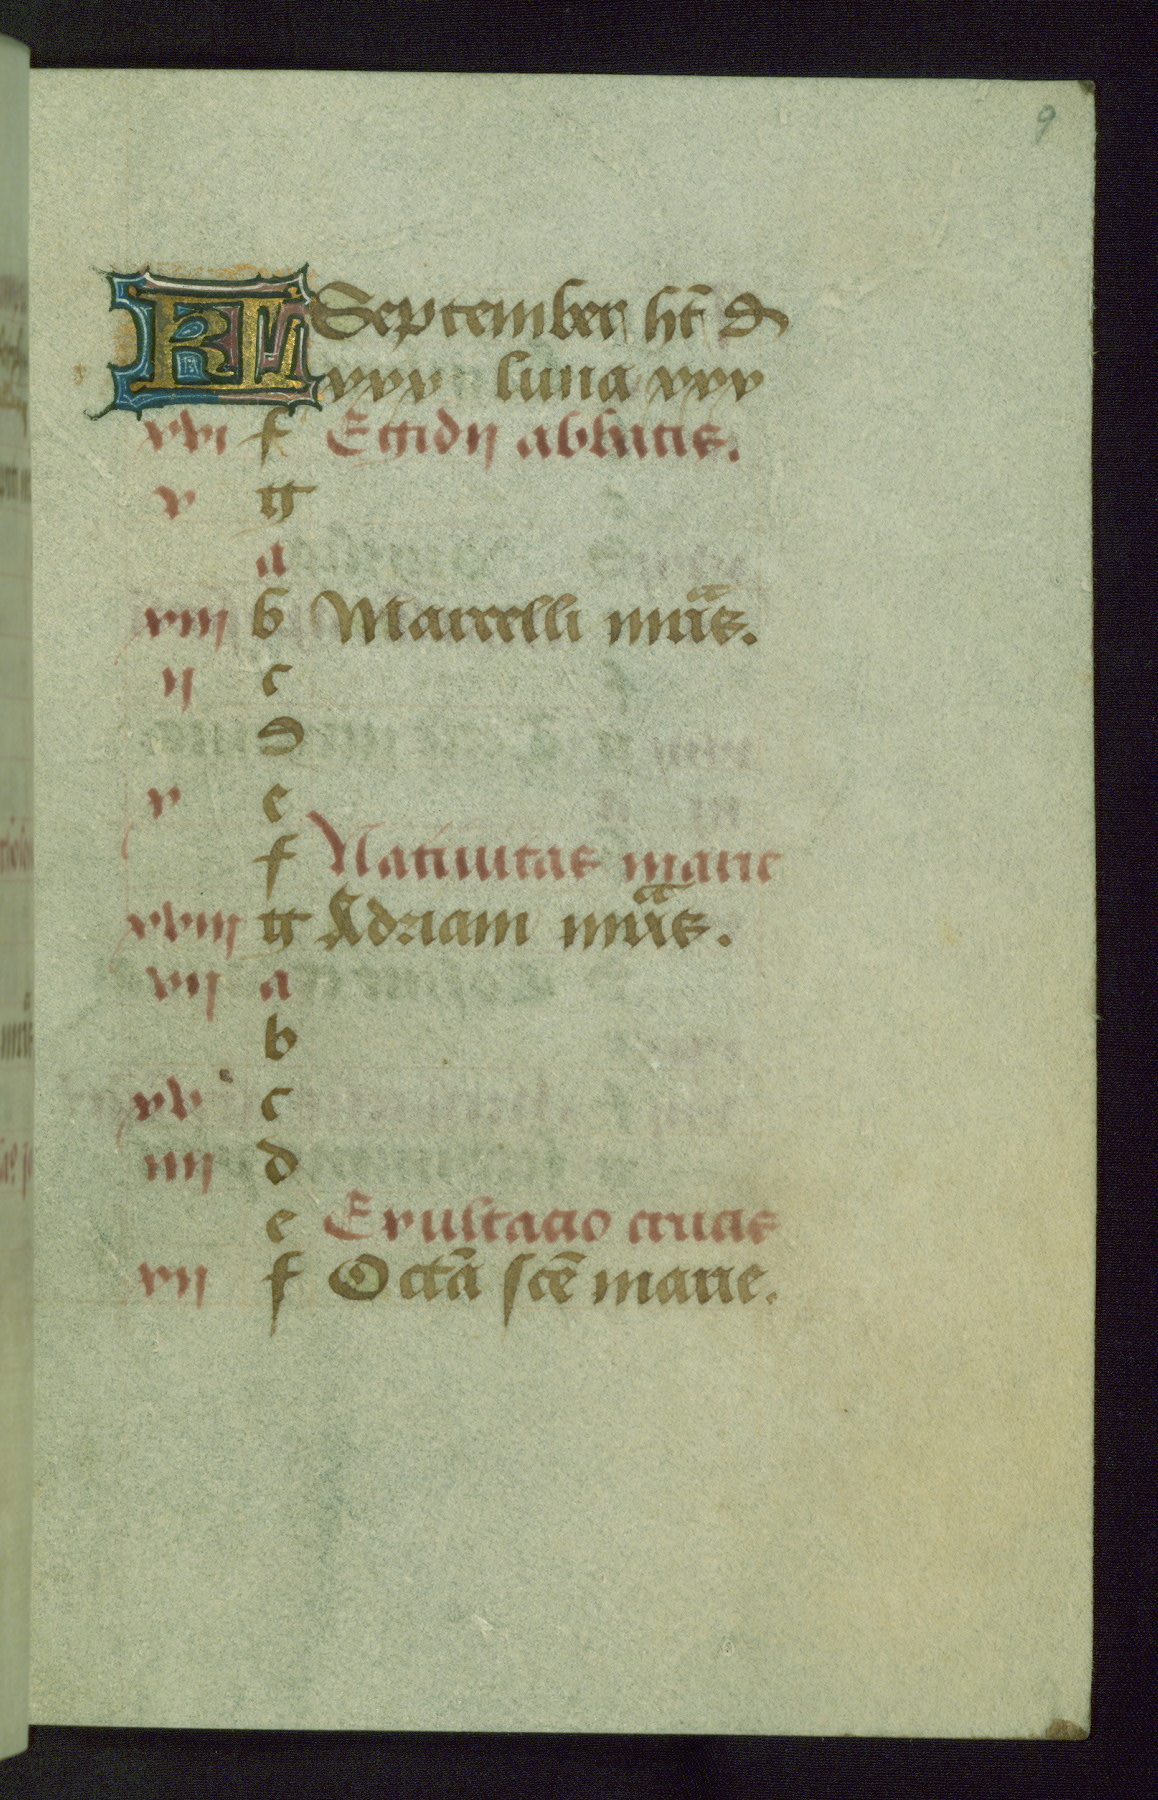 9
KL September ht̄ d
xxx luna xxx
xvi f Egidij abbatis.
v g
a
viij b Marcelli mr̄is.
ij c
d
v e
f Natiuitas marie
xviij g Adriani mr̄is.
vij a
b
xv c
iiij d
e Exultacio crucis
xij f Octā scē marie.